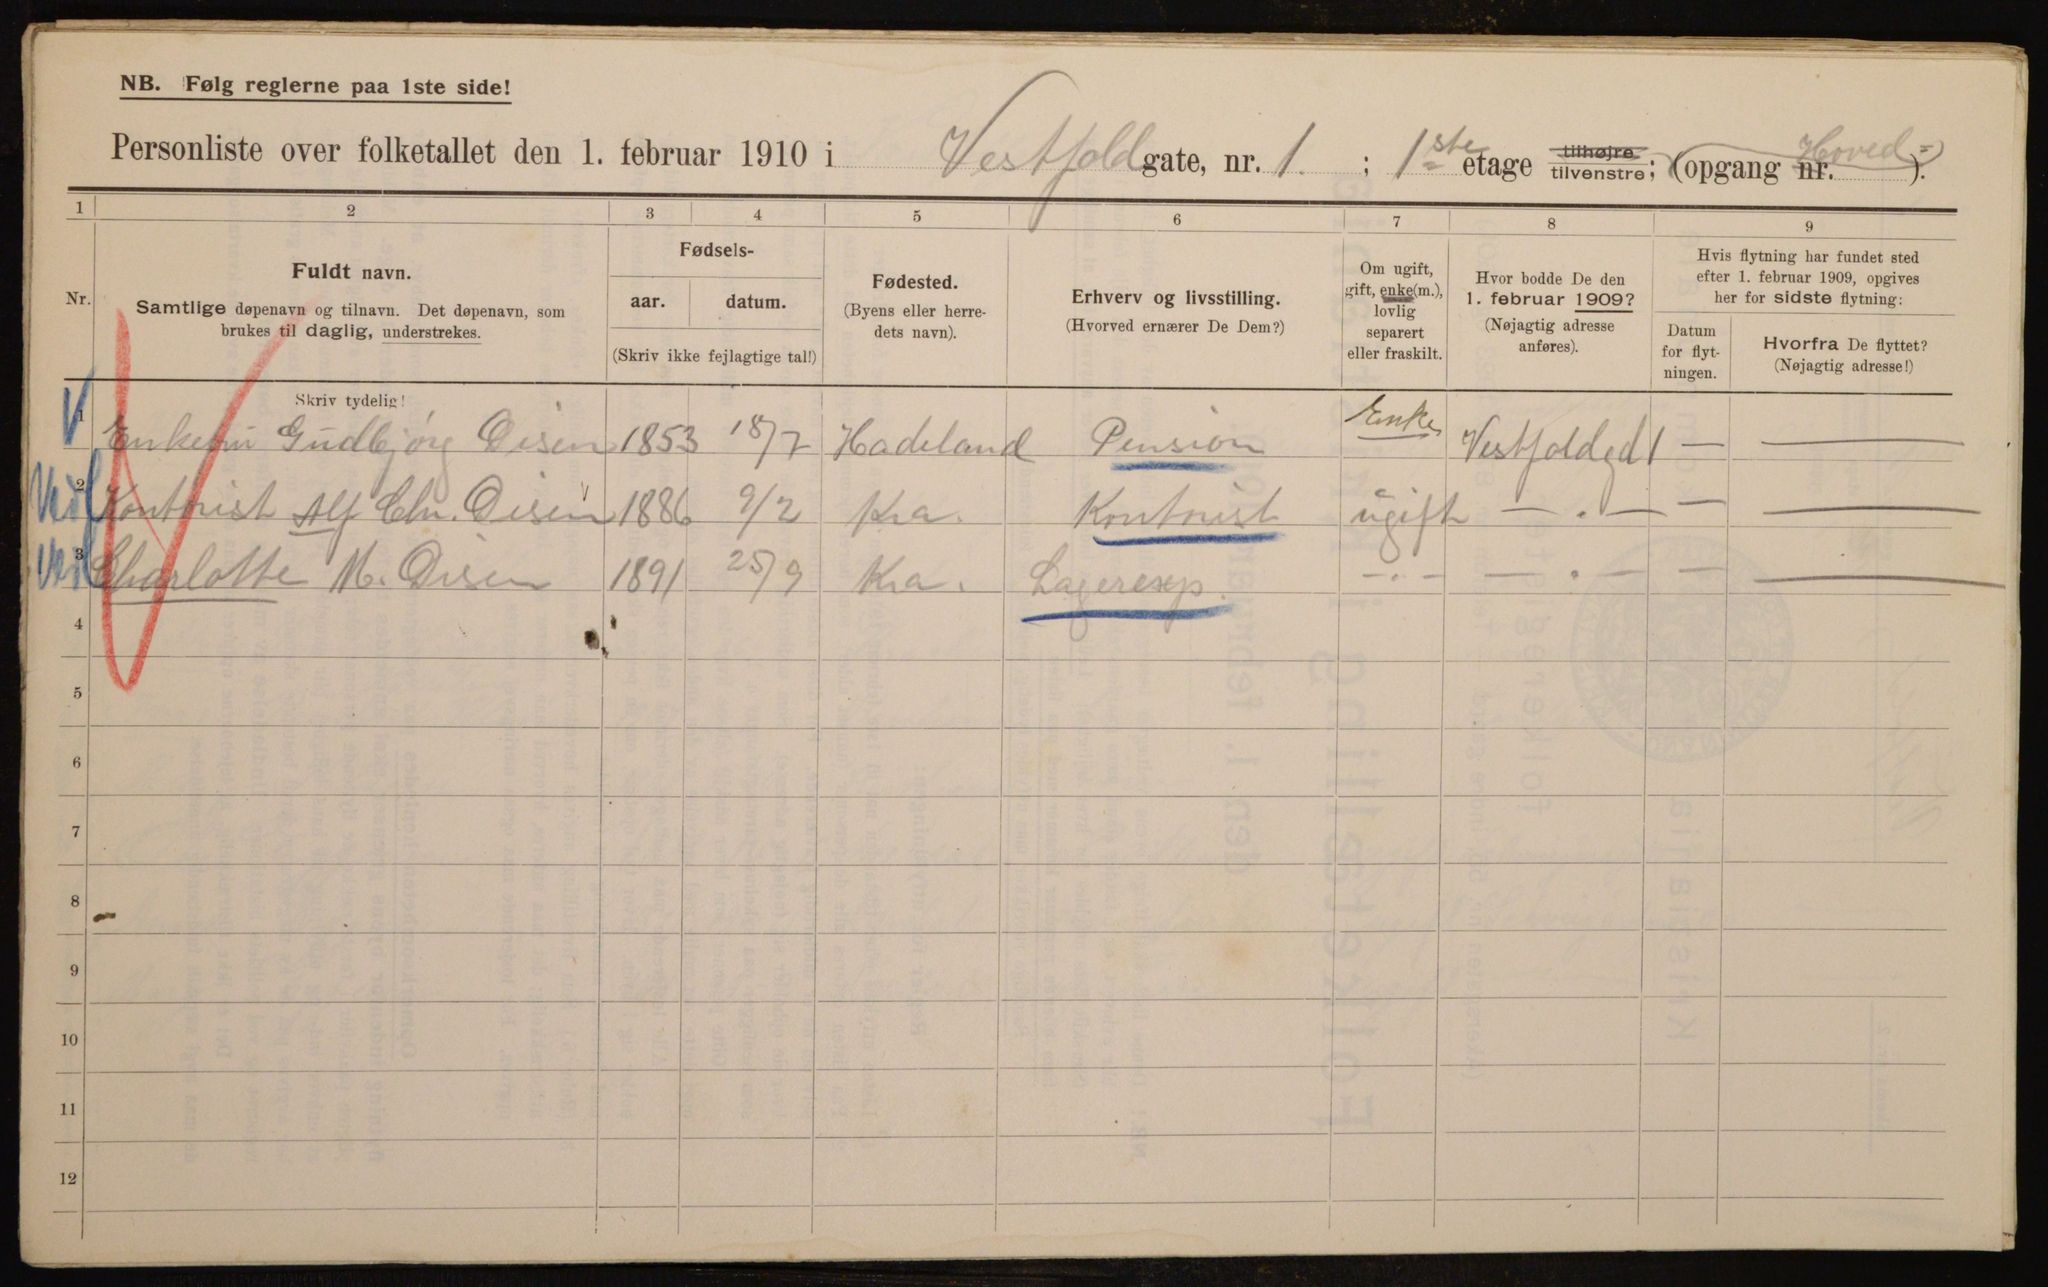 NB. Følg reglerne paa 1ste side!
Personliste over folketallet den 1. februar 1910 i Vestfold gate, nr. 1. ; 1ste etage tilhøjre tilvenstre; (opgang nr. Hoved= ).
1 2 3 4 5 6 7 8 9
Nr.
Fuldt navn.
Samtlige døpenavn og tilnavn. Det døpenavn, som
brukes til daglig, understrekes.
Fødsels-
aar. datum.
(Skriv ikke fejlagtige tal!)
Fødested.
(Byens eller herre-
dets navn).
Erhverv og livsstilling.
(Hvorved ernærer De Dem?)
Om ugift,
gift, enke(m.),
lovlig
separert
eller fraskilt.
Hvor bodde De den
1. februar 1909?
(Nøjagtig adresse
anføres).
Hvis flytning har fundet sted
efter 1. februar 1909, opgives
her for sidste flytning:
Datum
for flyt-
ningen.
Hvorfra De flyttet?
(Nøjagtig adresse!)
Skriv tydelig!
1 Gudbjørg Disen 1853 18/7 Hadeland Pension Enke Vestfoldgd 1 — —
2 Kontorist Alf Chr. Disen 1886 9/2 Kra. Kontorist ugift — . — — —
3 Charlotte M. Disen 1891 25/9 Kra. Lagereksp. — . — — . — — —
4
5
6
7
8
9
10
11
12